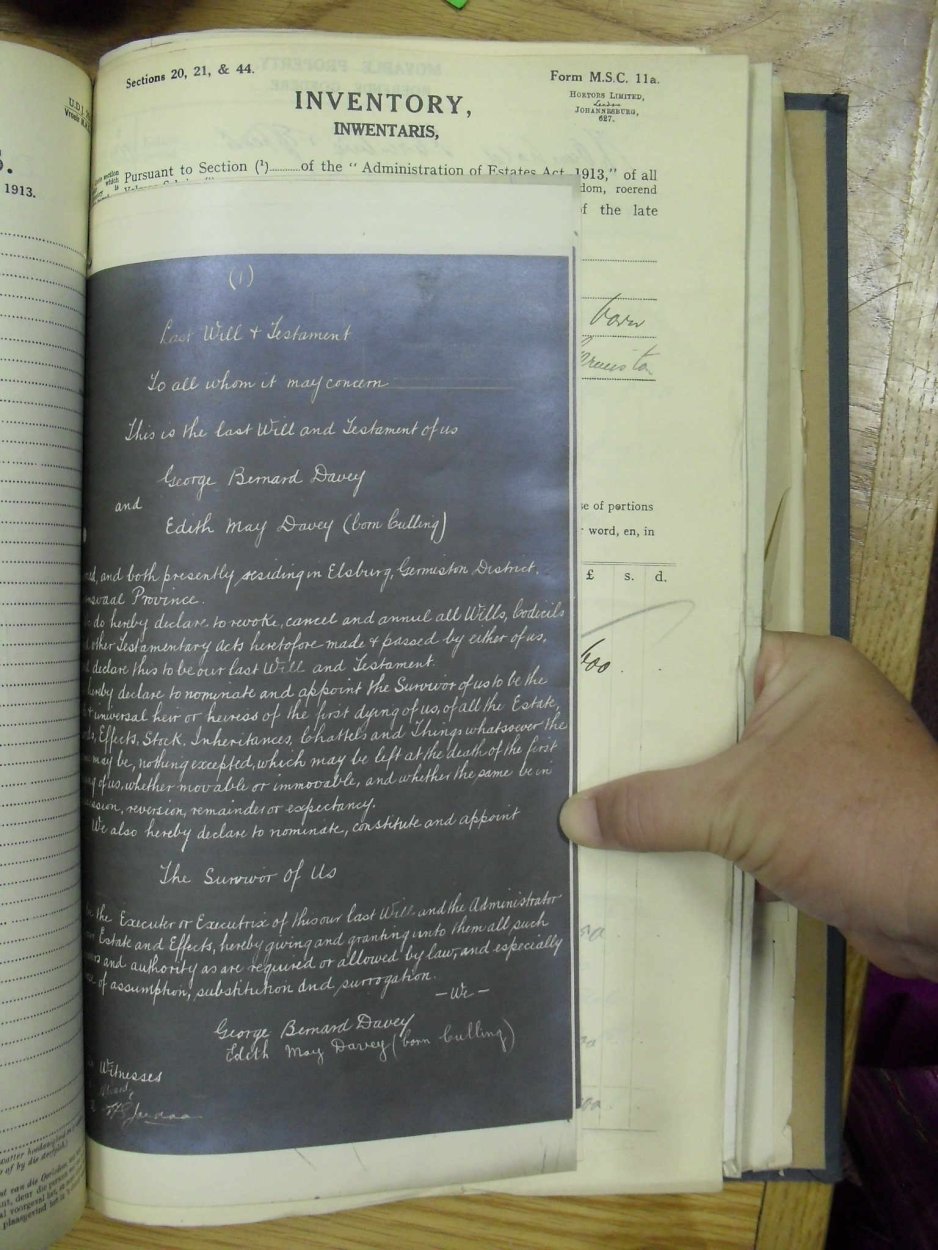 1913.
Sections 20, 21, & 44.
Form M.S.C. 11a.
HORTORS LIMITED,
JOHANNESBURG,
627.
INVENTORY,
INWENTARIS,
Pursuant to Section (¹)..........of the “Administration of Estates Act, 1913,” of all
roerend
of the late
born
se of portions
word, en, in
£ s. d.
(1)
Last Will & Testament
To all whom it may concern
This is the last Will and Testament of us
George Bernard Davey
and
Edith May Davey (born Culling)
and both presently residing in Elsburg, Germiston District,
Province.
do hereby declare to revoke, cancel and annul all Wills, Codicils
other Testamentary Acts heretofore made & passed by either of us,
declare this to be our last Will and Testament.
hereby declare to nominate and appoint the Survivor of us to be the
& universal heir or heiress of the first dying of us, of all the Estate,
Effects, Stock, Inheritances, Chattels and Things whatsoever the
may be, nothing excepted, which may be left at the death of the first
of us, whether movable or immovable, and whether the same be in
reversion, remainder or expectancy.
We also hereby declare to nominate, constitute and appoint
The Survivor of Us
the Executer or Executrix of this our last Will and the Administrator
Estate and Effects, hereby giving and granting unto them all such
and authority as are required or allowed by law, and especially
of assumption, substitution and surrogation.
— We —
George Bernard Davey
Edith May Davey (born Culling)
Witnesses